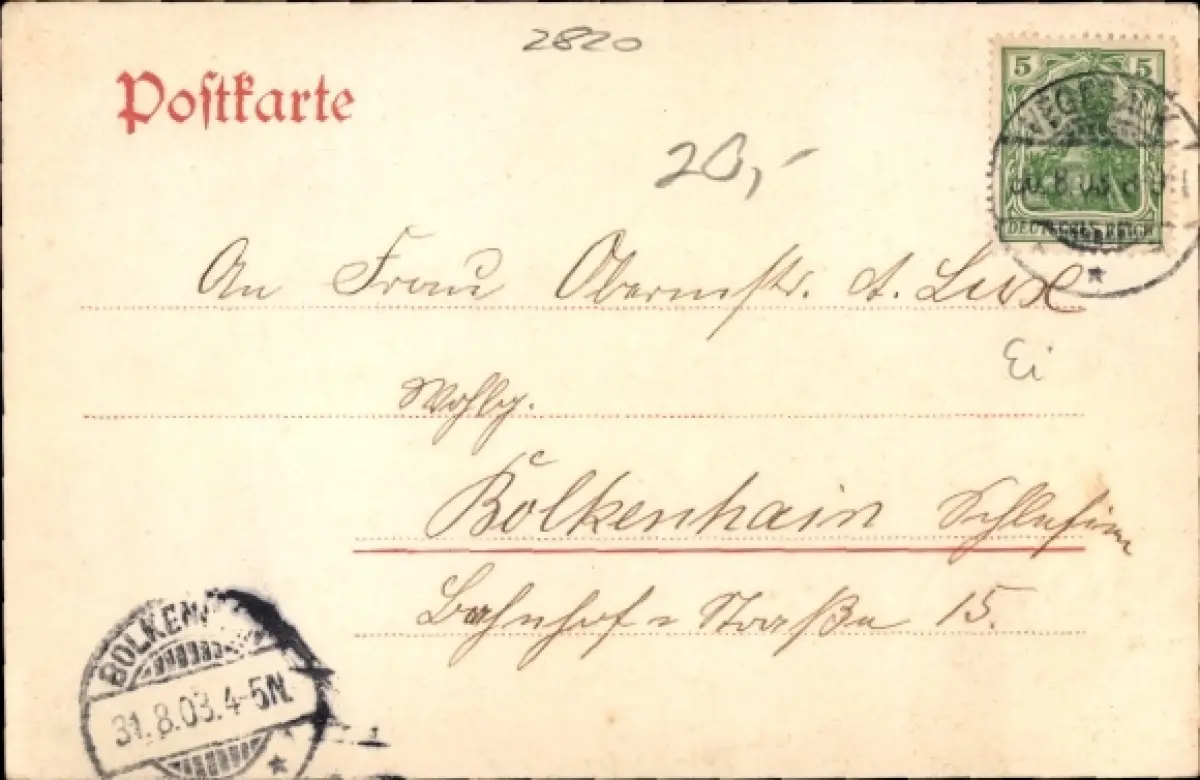 2820
Postkarte
5 5
20,-
30.8.03.
DEUTSCHES REICH
An Frau Obermstr. A. Lux
Ei
Wohlg.
Bolkenhain Schlesien
Bahnhof-Straße 15.
BOLKENHAIN
31.8.03.4-5N.